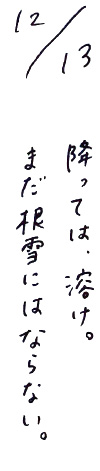 12/13
降っては、溶け。
まだ根雪にはならない。